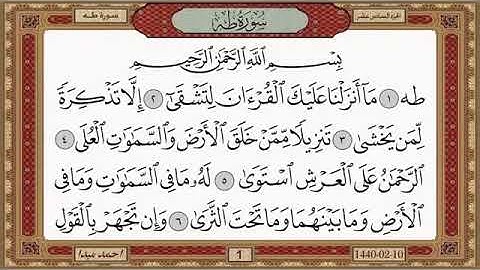 سورة طه
الجزء السادس عشر
سُورَةُ طه
بِسْمِ اللَّهِ الرَّحْمَٰنِ الرَّحِيمِ
طه ١ مَآ أَنزَلْنَا عَلَيْكَ الْقُرْءَانَ لِتَشْقَىٰٓ ٢ إِلَّا تَذْكِرَةً
لِّمَن يَخْشَىٰ ٣ تَنزِيلًا مِّمَّنْ خَلَقَ الْأَرْضَ وَالسَّمَٰوَٰتِ الْعُلَى ٤
الرَّحْمَٰنُ عَلَى الْعَرْشِ اسْتَوَىٰ ٥ لَهُۥ مَا فِي السَّمَٰوَٰتِ وَمَا فِي
الْأَرْضِ وَمَا بَيْنَهُمَا وَمَا تَحْتَ الثَّرَىٰ ٦ وَإِن تَجْهَرْ بِالْقَوْلِ
1440-02-10
1